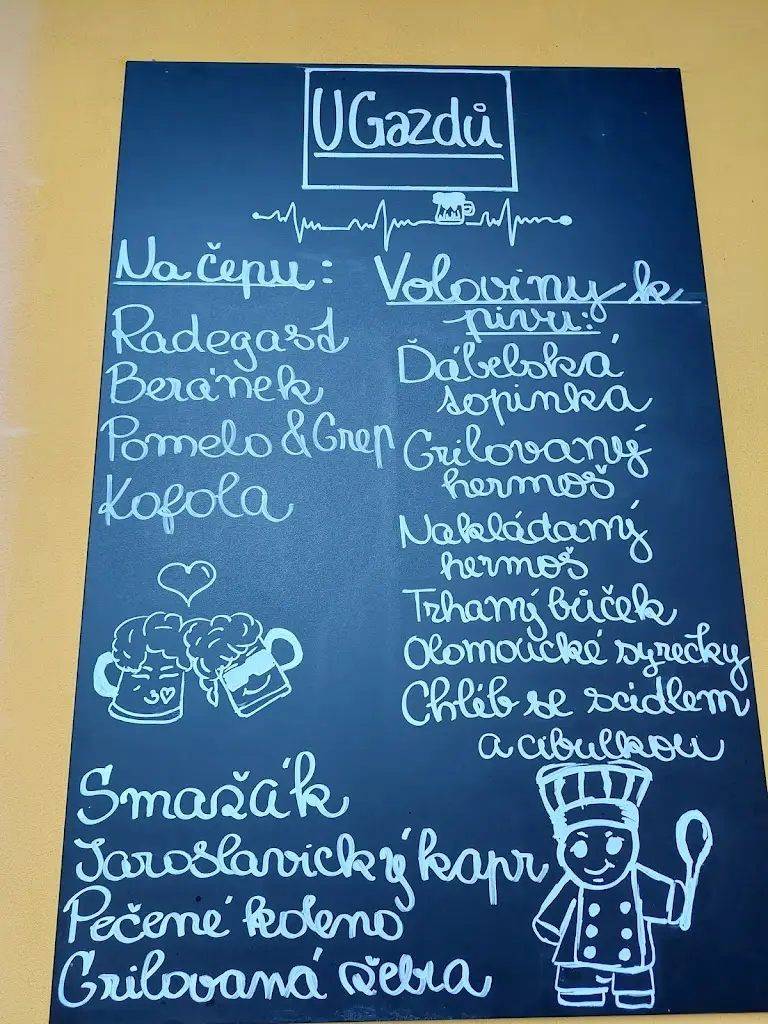 U Gazdů
Na čepu:
Radegast
Beránek
Pomelo & Grep
Kofola
Voloviny k
pivu:
Ďábelská
topinka
Grilovaný
hermoš
Nakládaný
hermoš
Trhaný bůček
Olomoucké syrečky
Chléb se scidlem
a cibulkou
Smažák
Jaroslavický kapr
Pečené koleno
Grilovaná žebra